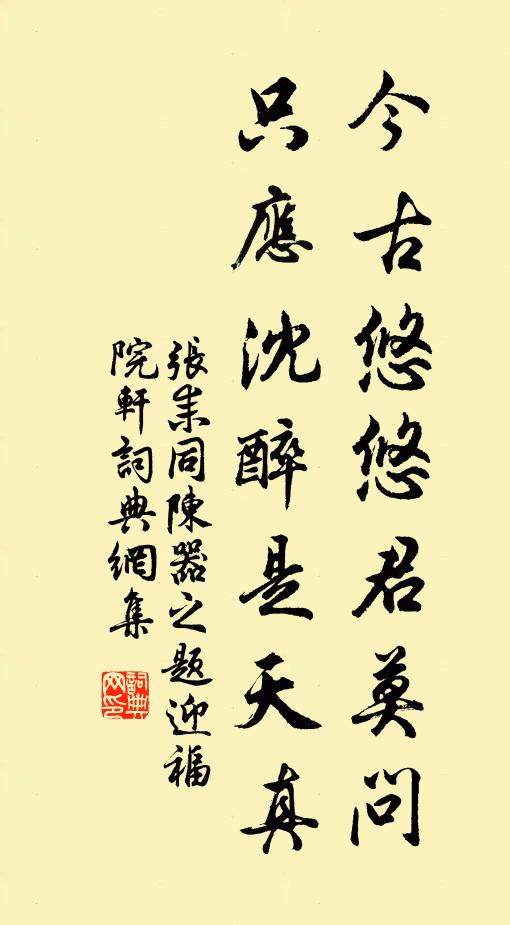 今古悠悠君莫問
只應沈醉是天真
張耒同陳器之題迎福
院軒詞典網集
詞典
网印